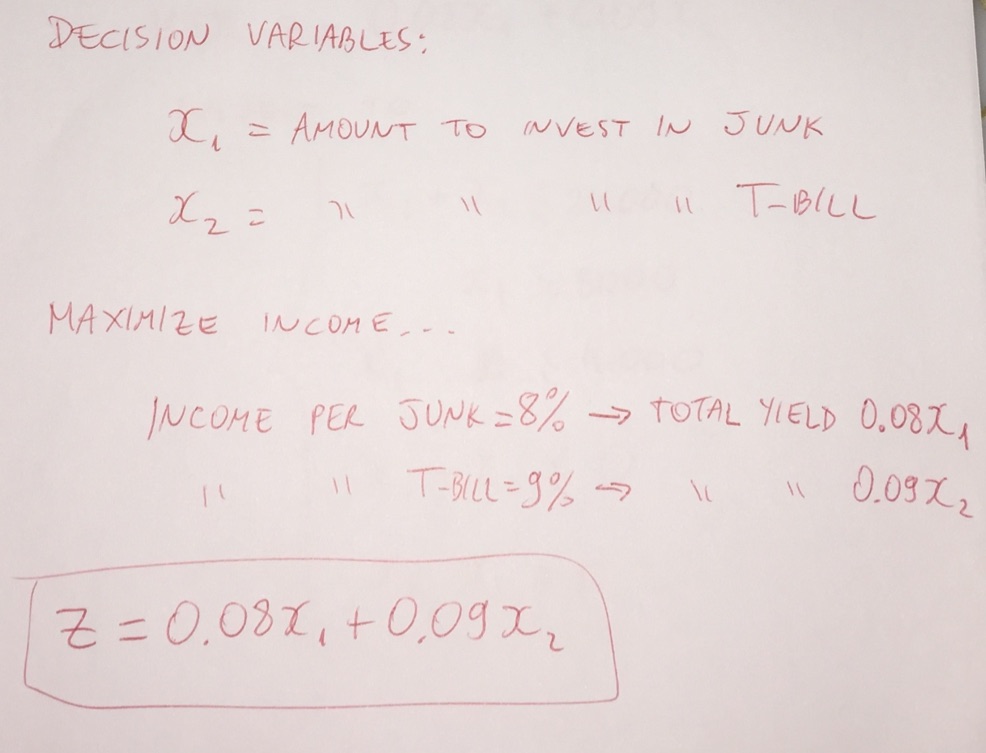 DECISION VARIABLES:
x₁ = AMOUNT TO INVEST IN JUNK
x₂ = " " " " T-BILL
MAXIMIZE INCOME...
INCOME PER JUNK = 8% → TOTAL YIELD 0.08x₁
" " T-BILL = 9% → " " 0.09x₂
Z = 0.08x₁ + 0.09x₂